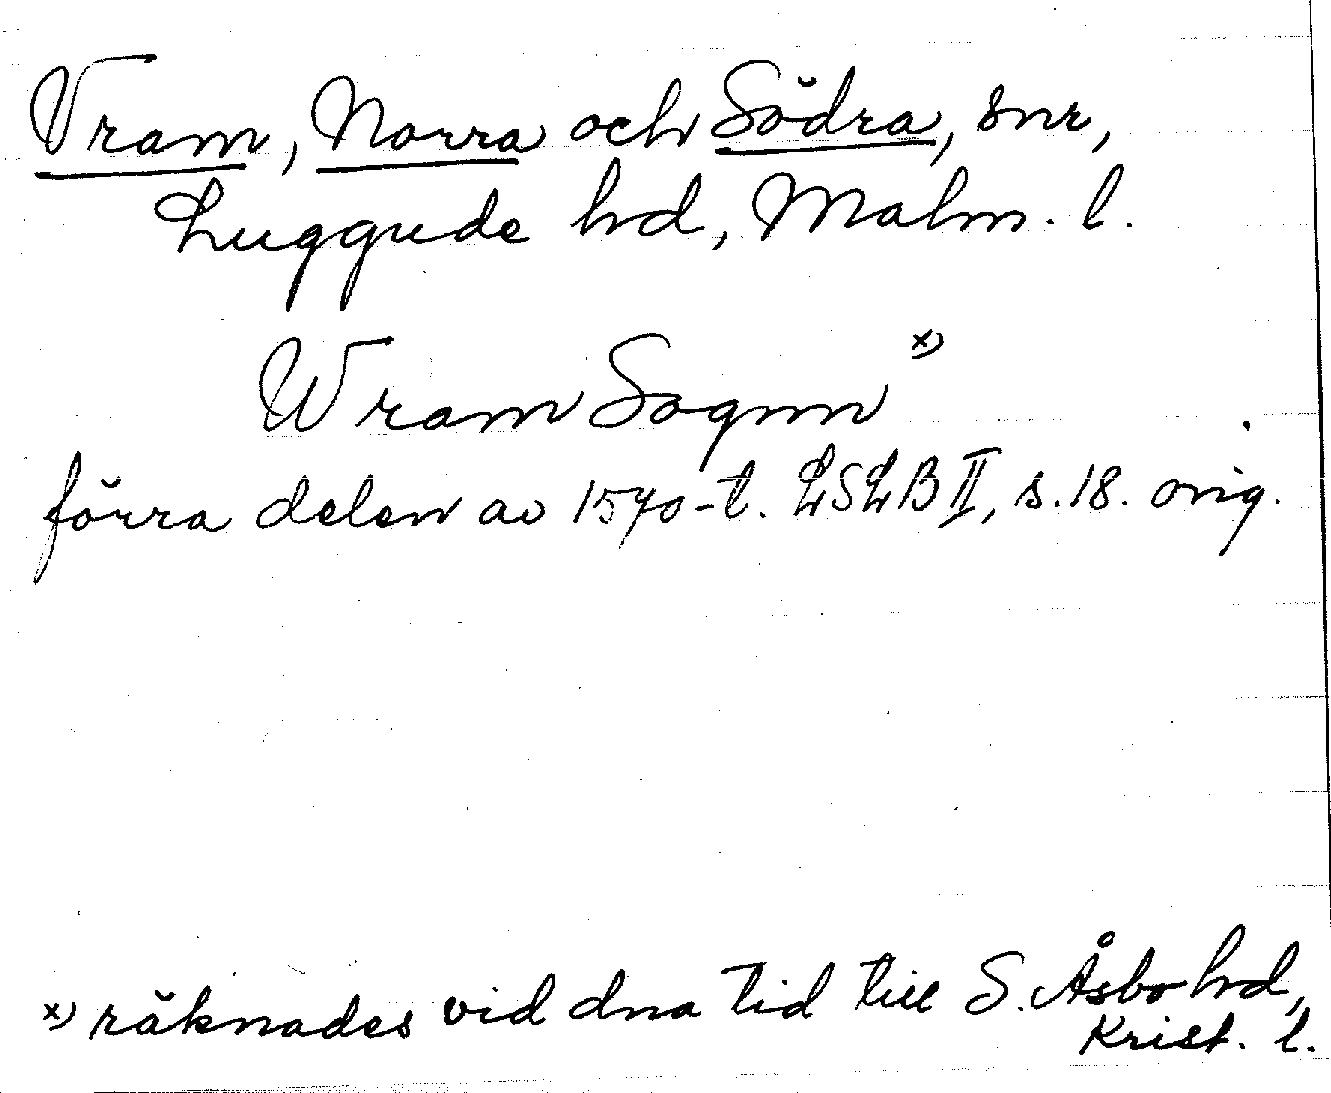 Vram, Norra och Södra, snr,
Luggude hd, Malm. l.
Wram Sognn x)
förra delen av 1570-t. LSLB II, s. 18. orig.
x) räknades vid dna tid till S. Åsbo hd,
Krist. l.